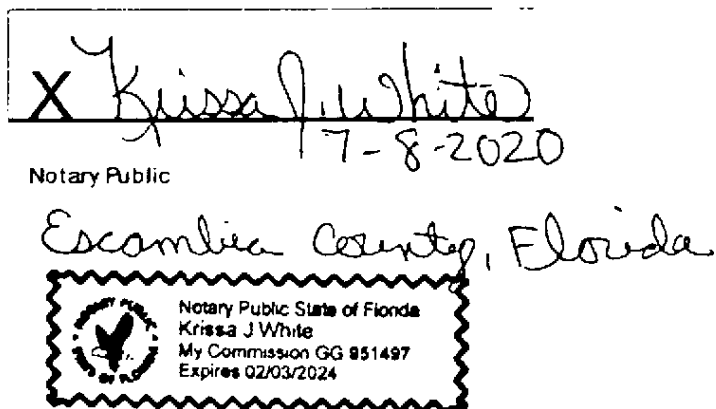 X Krissa J. White
7-8-2020
Notary Public
Escambia County, Florida
Notary Public State of Florida
Krissa J White
My Commission GG 951497
Expires 02/03/2024
NOTARY PUBLIC
STATE OF FLORIDA